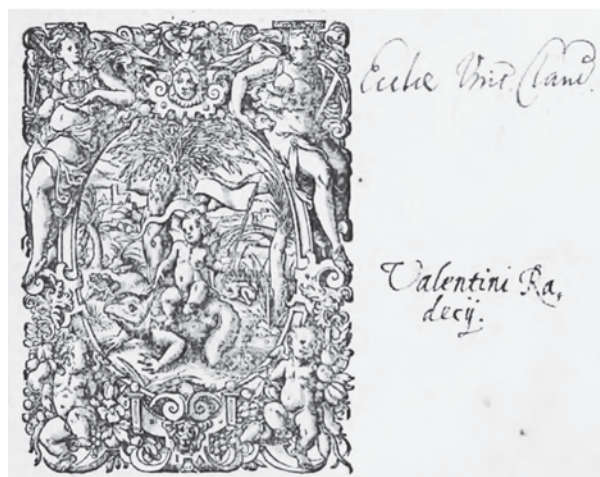 Ecclae Vnit. Claud.
Valentini Ra,
decij.